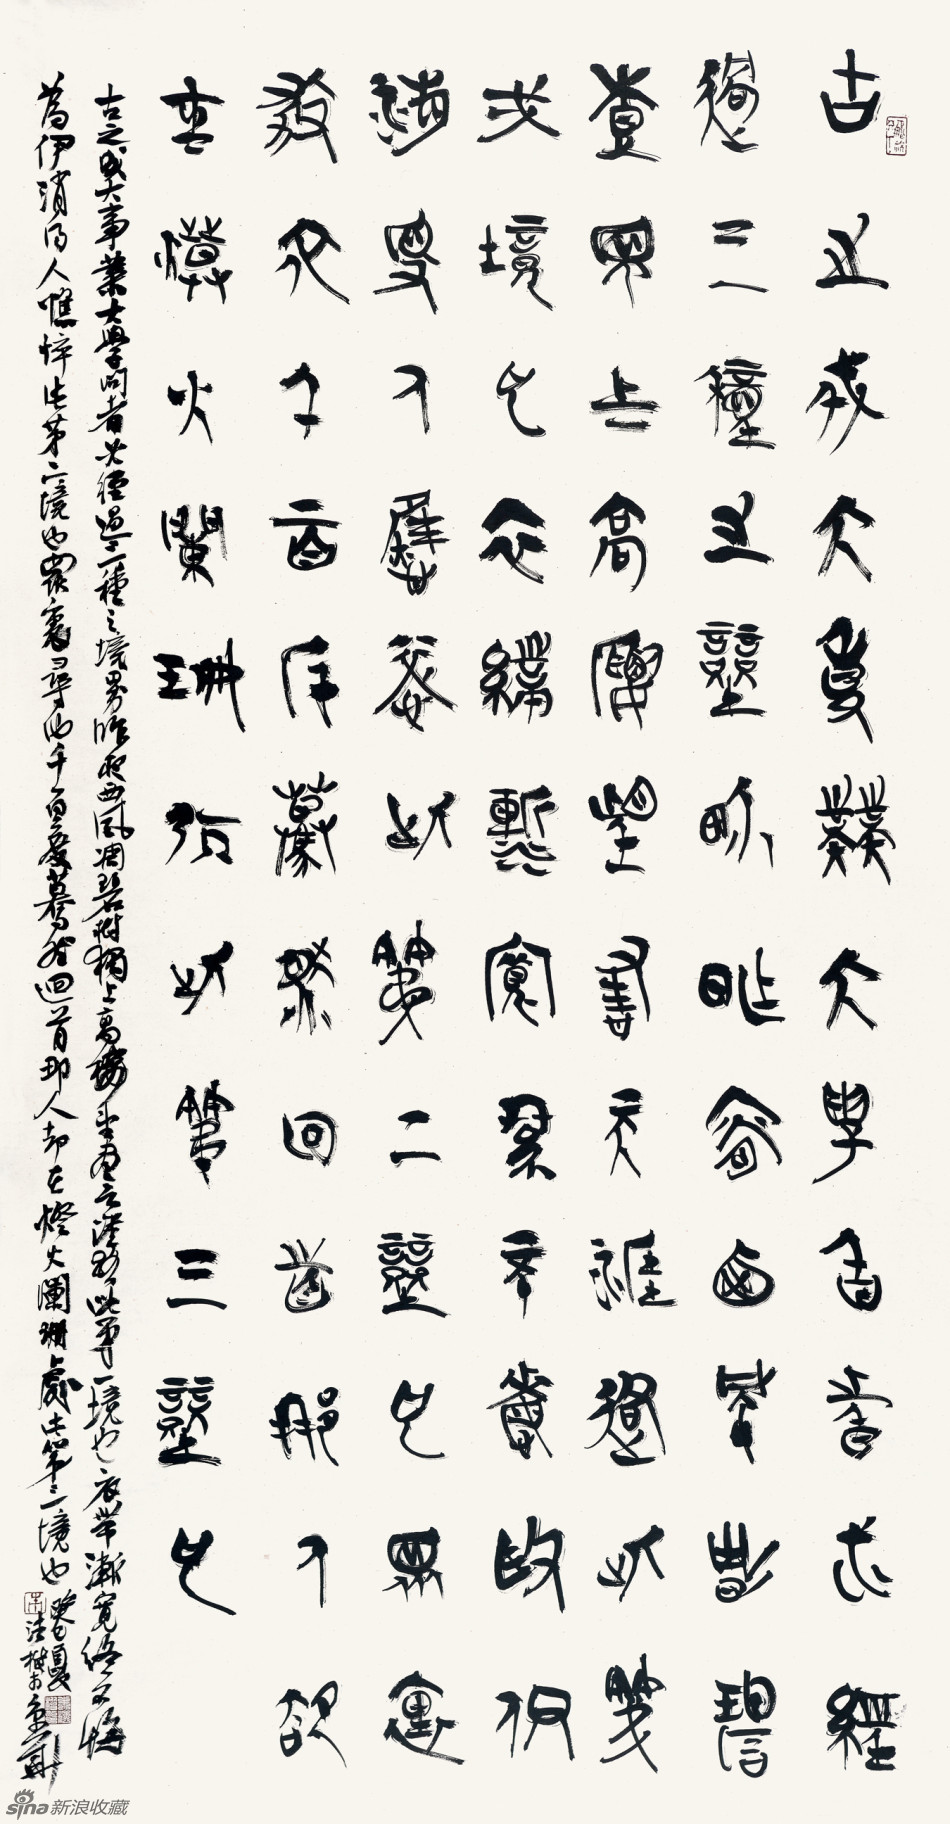 古之成大事業大學問者必經
過三種之境界昨夜西風凋碧
樹獨上高樓望盡天涯路此第
一境也衣帶漸寬終不悔為伊
消得人憔悴此第二境也眾裏
尋他千百度驀然回首那人卻
在燈火闌珊處此第三境也
古之成大事業大學問者必經過三種之境界昨夜西風凋碧樹獨上高樓望盡天涯路此第一境也衣帶漸寬終不悔
為伊消得人憔悴此第二境也眾裏尋他千百度驀然迴首那人卻在燈火闌珊處此第三境也
癸巳夏
sina新浪收藏